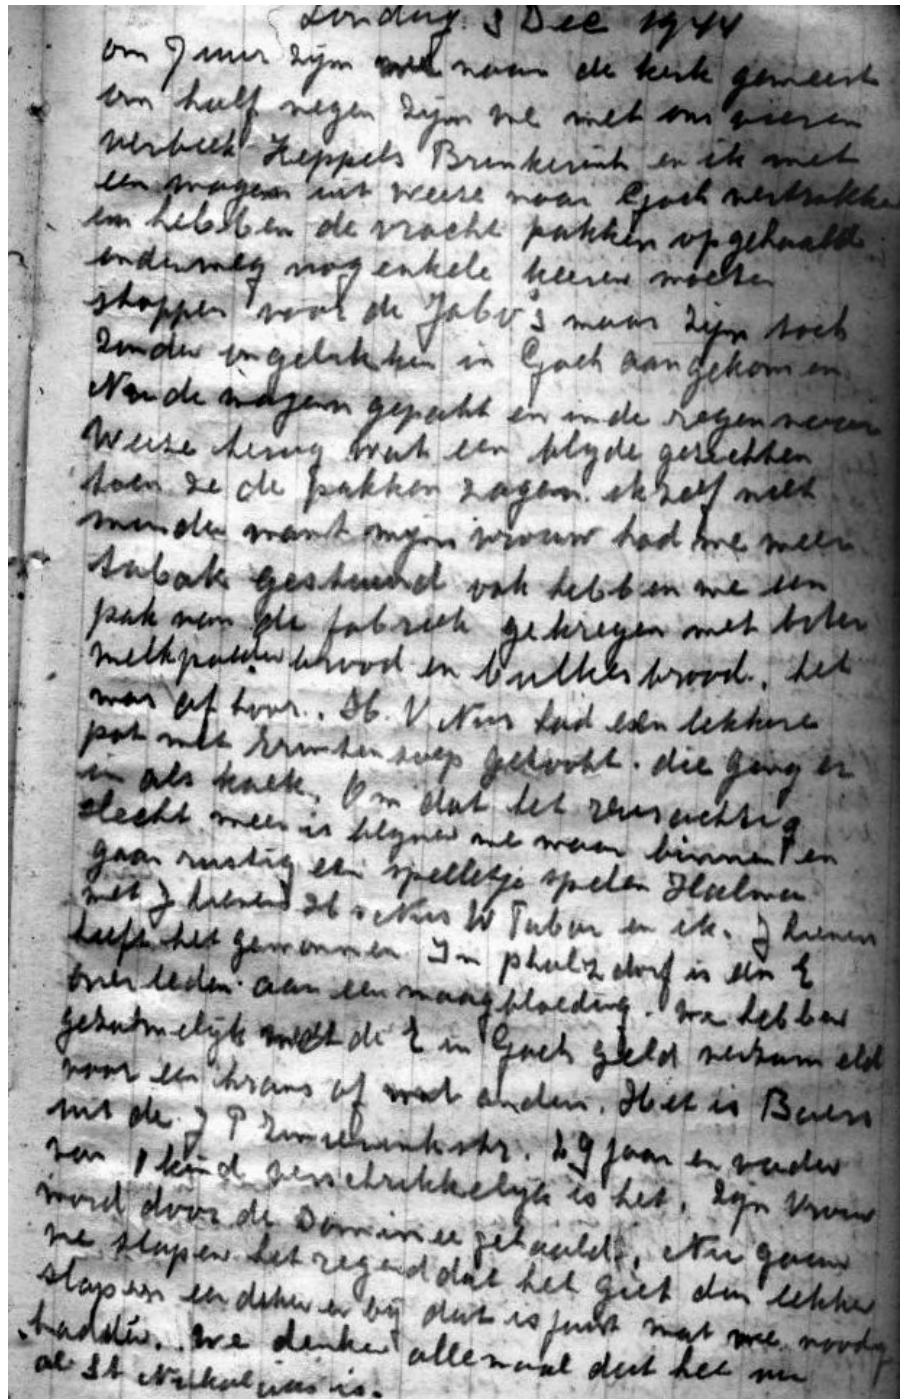 Zondag 3 Dec 1944
om 7 uur zijn we naar de kerk geweest
om half negen zijn we met ons vieren
verbeek Heppels Brinkerink en ik met
een wagen uit weeze naar Goch vertrokken
en hebben de vracht pakken opgehaald
onderweg nog enkele keeren moeten
stoppen voor de Jabo's maar zijn toch
zonder ongelukken in Goch aangekomen
Na de wagen gepakt en in de regen naar
Weeze terug wat een blyde gezichten
toen ze de pakken zagen. ik zelf niet
minder want mijn vrouw had me weer
tabak gestuurd ook hebben we een
pak van de fabriek gekregen met boter
melkpoeder brood en brood. het
was af hoor. H. V Nus had een lekkere
pot met Erwten soep gekookt. die ging er
in als koek. Om dat het
slecht weer is blyven we maar binnen en
gaan rustig een spelletje spelen Halma
met J H v Nus W Tabor en ik. J
heeft het gewonnen. In phalzdorf is een E
overleden aan een maagbloeding. we hebben
gezamelijk met de E in Goch geld verzameld
voor een krans of wat anders. Het is
uit de J P str. 29 jaar en vader
van 1 kind verschrikkelijk is het. Zijn Vrouw
word door de Dominee gehaald. Nu gaan
we slapen het regend dat het giet dan lekker
slapen een deken er bij dat is juist wat we noodig
hadden. We denken allemaal dat het nu
al St Nikolaas is.